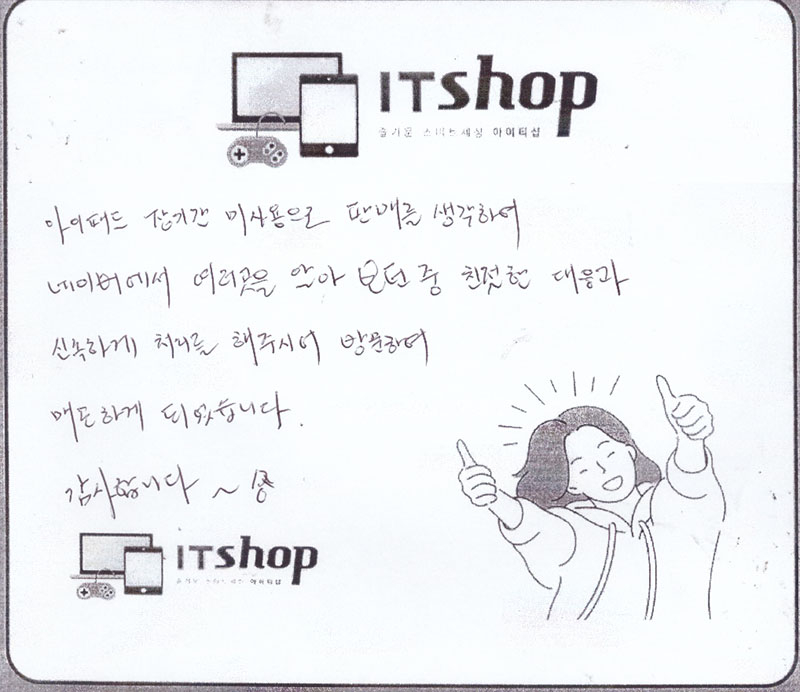 ITshop
즐거운 스마트세상 아이티샵
아이패드 장기간 미사용으로 판매를 생각하여
네이버에서 여러곳을 알아 보던 중 친절한 대응과
신속하게 처리를 해주시어 방문하여
매도하게 되었습니다.
감사합니다 ~
ITshop
즐거운 스마트세상 아이티샵